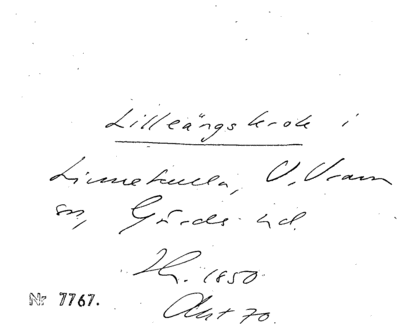 Lilleängskrok i
Linnekulla, V. Vram
sn, Gärds hd.
1850
Nr 7767.
Akt 70.